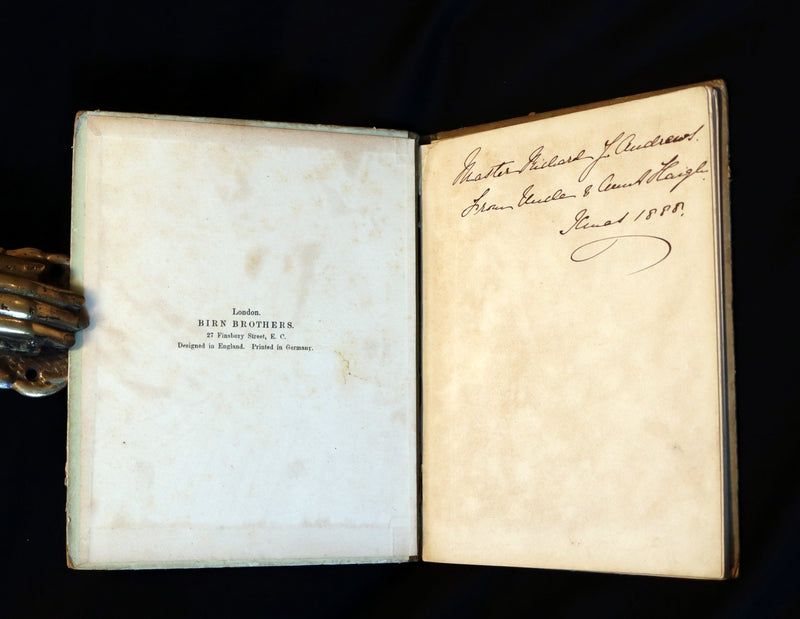 London.
BIRN BROTHERS.
27 Finsbury Street, E. C.
Designed in England. Printed in Germany.
Master Richard J. Andrews.
From Uncle & Aunt Haigh.
Xmas 1888.